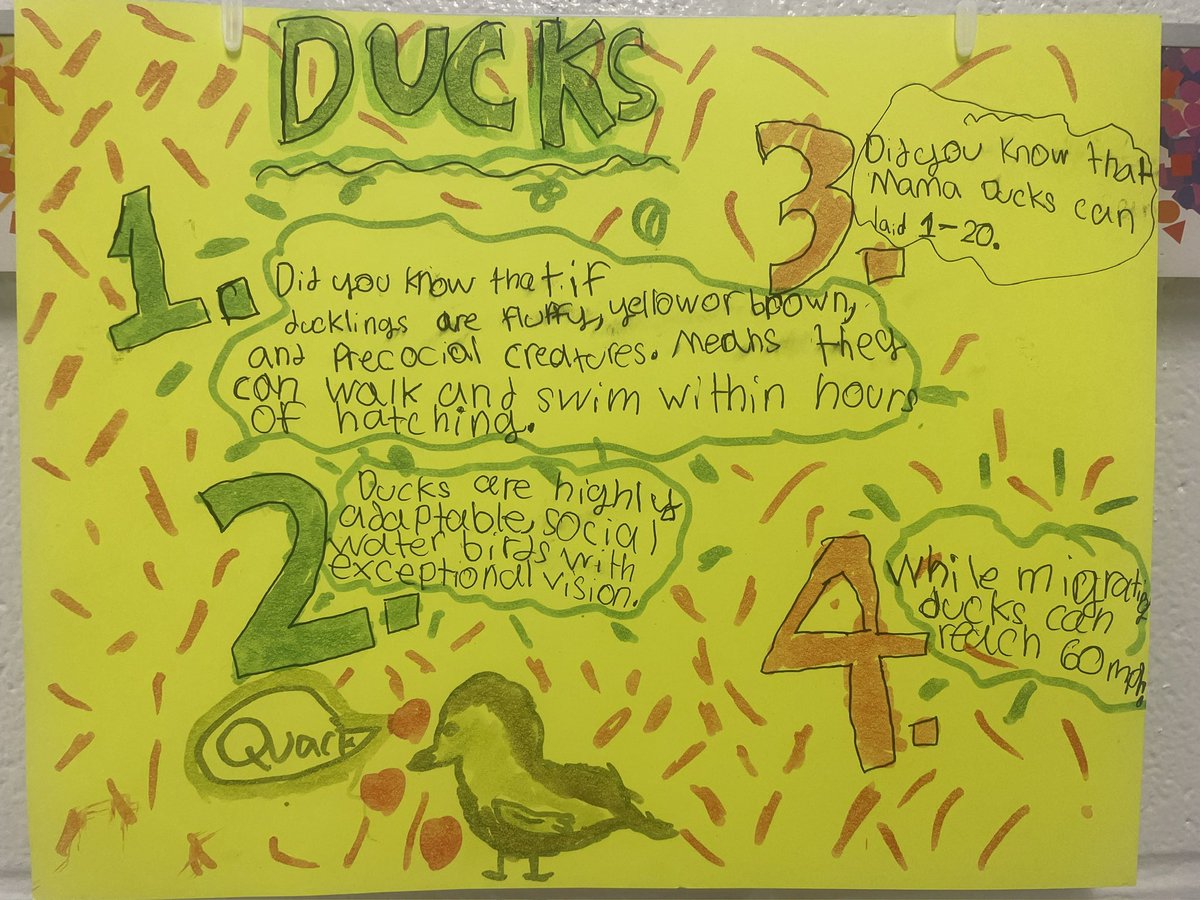 DUCKS
1.
Did you know that if
ducklings are fluffy, yellow or brown,
and Precocial creatures. Means they
can walk and swim within hours
of hatching.
2.
Ducks are highly
adaptable, social
water birds with
exceptional vision.
3.
Did you know that
Mama ducks can
laid 1-20.
4.
While migrating
ducks can
reach 60 mph.
Quack